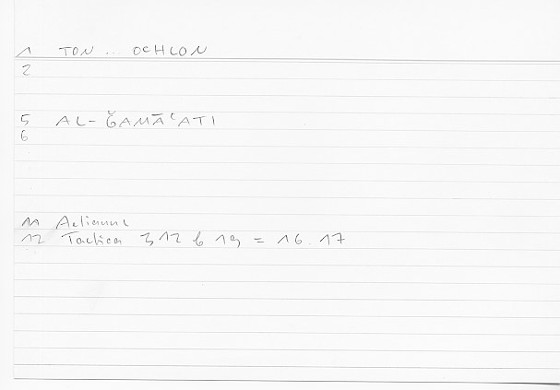 1 TON ... OCHLON
2
5 AL-ǦAMĀʿATI
6
11 Aelianus
12 Tactica 3 12 b 19 = 16.17